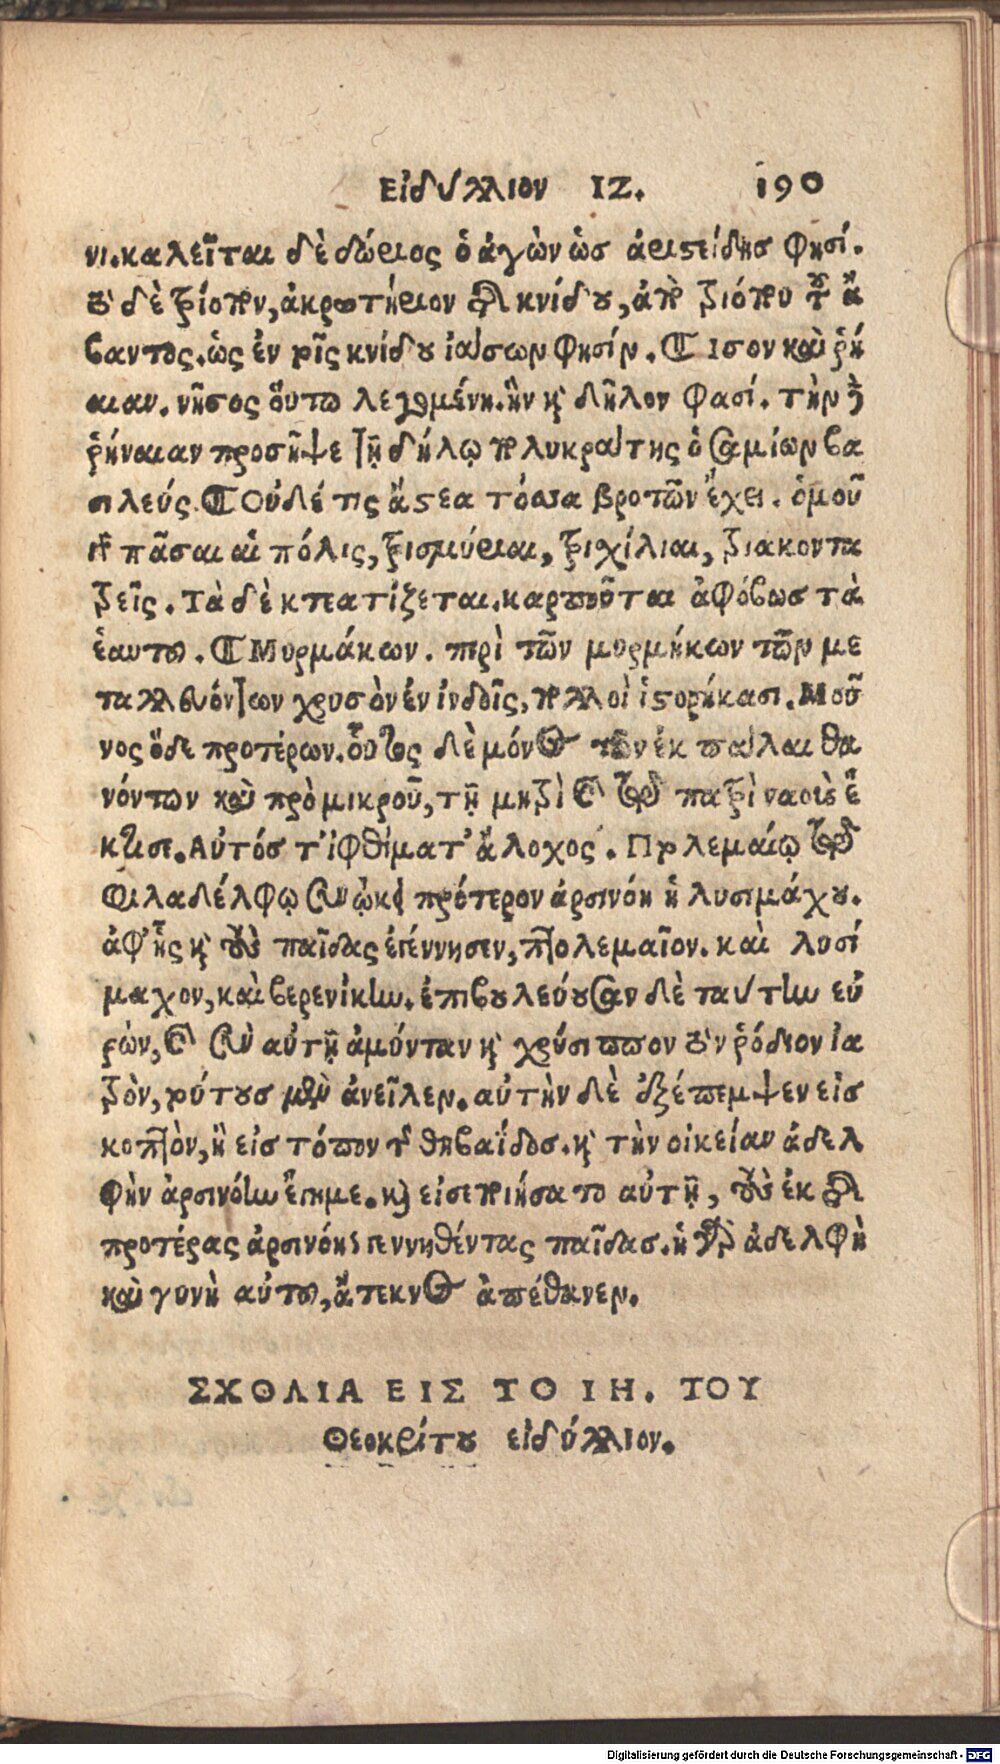 Εἰδύλλιον ΙΖ. 190
νι. καλεῖται δὲ δώριος ὁ ἀγὼν ὡσ ἀριστείδησ φησί.
τὸ δὲ τρίοπον, ἀκρωτήριον τῆς κνίδου, ἀπὸ τριόπου τοῦ ἄ
βαντος. ὡς ἐν τοῖς κνίδου ἰάσων φησίν. Ἶσον καὶ ῥή
αιαν. νῆσος οὕτω λεγομένη. ἣν καὶ δῆλον φασί. τὴν
ῥήναιαν προσῆψε τῇ δήλῳ πολυκράτης ὁ σαμίων βα
σιλεύς. Οὐδέ τις ἄστεα τόσσα βροτῶν ἔχει. ὁμοῦ
πᾶσαι αἱ πόλις, τρισμύριαι, τρισχίλιαι, τριάκοντα
τρεῖς. Τὰ δὲ κπατίζεται. καρποῦται ἀφόβωσ τὰ
ἑαυτοῦ. Μυρμάκων. περὶ τῶν μυρμήκων τῶν με
ταλλευόντων χρυσὸν ἐν ἰνδοῖς, πολλοὶ ἱστορήκασι. Μοῦ
νος ὅδε προτέρων. οὗτος δὲ μόνος τῶν ἐκ πάλαι θα
νόντων καὶ πρὸ μικροῦ, τῇ μητρὶ καὶ τῷ πατρὶ ναοὺς ἔ
κτισε. Αὐτόσ τ' ἰφθίματ' ἄλοχος. Πτολεμαίῳ τῷ
Φιλαδέλφῳ συνῴκει πρότερον ἀρσινόη ἡ λυσιμάχου.
ἀφ' ἧς καὶ τοὺς παῖδας ἐγέννησεν, πτολεμαῖον. καὶ λυσί
μαχον, καὶ βερενίκην. ἐπιβουλεύουσαν δὲ ταύτην εὑ
ρὼν, καὶ σὺν αὐτῇ ἀμύνταν καὶ χρύσιππον τὸν ῥόδιον ἰα
τρὸν, τούτουσ μὲν ἀνεῖλεν. αὐτὴν δὲ ἐξέπεμψεν εἰσ
κοπτὸν, ἢ εἰσ τόπον τῆς θηβαΐδοσ. καὶ τὴν οἰκείαν ἀδελ
φὴν ἀρσινόην ἔγημε. καὶ εἰσεποιήσατο αὐτῇ, τοὺς ἐκ τῆς
προτέρας ἀρσινόης γεννηθέντας παῖδασ. ἡ γὰρ ἀδελφὴ
καὶ γυνὴ αὐτοῦ, ἄτεκνος ἀπέθανεν.
ΣΧΟΛΙΑ ΕΙΣ ΤΟ ΙΗ. ΤΟΥ
Θεοκρίτου εἰδύλλιον.
Digitalisierung gefördert durch die Deutsche Forschungsgemeinschaft - DFG